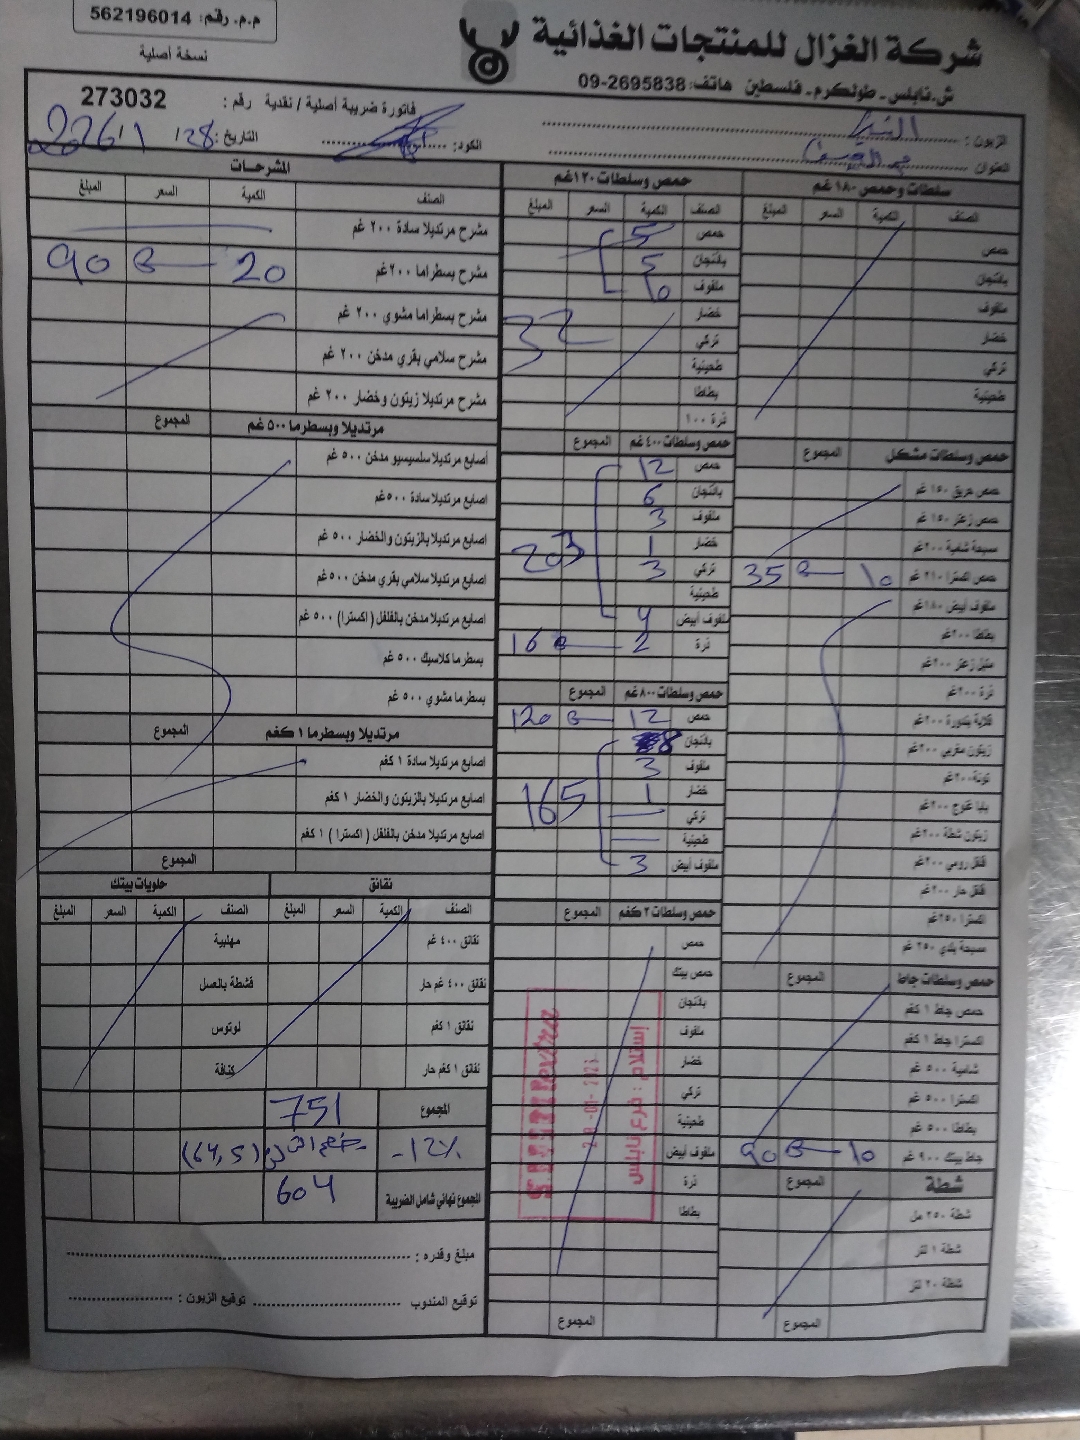 م.م. رقم: 562196014
نسخة أصلية
شركة الغزال للمنتجات الغذائية
ش.نابلس - طولكرم - فلسطين هاتف: 09-2695838
فاتورة ضريبة أصلية / نقدية رقم : 273032
الزبون :
العنوان
الكود:
التاريخ: 28 / 1 / 2026
سلطات وحمص ١٨٠ غم
الصنف الكمية السعر المبلغ
حمص
باذنجان
ملفوف
خضار
تركي
طحينية
حمص وسلطات مشكل المجموع
حمص حريق ١٥٠ غم
حمص زعتر ١٥٠ غم
مسبحة شامية ٢٠٠غم
حمص اكسترا ٢١٠ غم 10 35
ملفوف أبيض ١٨٠غم
بطاطا ٢٠٠غم
متبل زعتر ٢٠٠غم
ذرة ٢٠٠غم
قلاية بندورة ٢٠٠غم
زيتون مغربي ٢٠٠غم
تونة ٢٠٠غم
بابا غنوج ٢٠٠غم
زيتون شطة ٢٠٠غم
فلفل رومي ٢٠٠غم
فلفل حار ٢٠٠غم
اكسترا ٢٥٠غم
مسبحة بلدي ٢٥٠ غم
حمص وسلطات جاط المجموع
حمص جاط ١ كغم
اكسترا جاط ١ كغم
شامية ٥٠٠ غم
اكسترا ٥٠٠ غم
بطاطا ٥٠٠ غم
جاط بيتك ٩٠٠ غم 10 90
شطة المجموع
شطة ٢٥٠ مل
شطة ١ لتر
شطة ٢٠ لتر
المجموع
حمص وسلطات ١٢٠غم
الصنف الكمية السعر المبلغ
حمص 5
باذنجان 5
ملفوف 10
خضار 32
تركي
طحينية
بطاطا
ذرة ١٠٠
حمص وسلطات ٤٠٠ غم المجموع
حمص 12
باذنجان 6
ملفوف 3
خضار 1
تركي 3
طحينية
ملفوف أبيض 4
ذرة 2 16
حمص وسلطات ٨٠٠غم المجموع
حمص 12 120
باذنجان 8
ملفوف 3
خضار 1 165
تركي
طحينية
ملفوف أبيض 3
حمص وسلطات ٢ كغم المجموع
حمص
حمص بيتك
باذنجان
ملفوف
خضار
تركي
طحينية
ملفوف أبيض
ذرة
بطاطا
المجموع
إستلام : فرع نابلس
المشرحات
الصنف الكمية السعر المبلغ
مشرح مرتديلا سادة ٢٠٠ غم
مشرح بسطراما ٢٠٠غم 20 90
مشرح بسطراما مشوي ٢٠٠ غم
مشرح سلامي بقري مدخن ٢٠٠ غم
مشرح مرتديلا زيتون وخضار ٢٠٠ غم
مرتديلا وبسطرما ٥٠٠ غم المجموع
أصابع مرتديلا سلسيسيو مدخن ٥٠٠ غم
اصابع مرتديلا سادة ٥٠٠غم
اصابع مرتديلا بالزيتون والخضار ٥٠٠ غم
اصابع مرتديلا سلامي بقري مدخن ٥٠٠ غم
اصابع مرتديلا مدخن بالفلفل ( اكسترا ) ٥٠٠ غم
بسطرما كلاسيك ٥٠٠ غم
بسطرما مشوي ٥٠٠ غم
مرتديلا وبسطرما ١ كغم المجموع
اصابع مرتديلا سادة ١ كغم
اصابع مرتديلا بالزيتون والخضار ١ كغم
اصابع مرتديلا مدخن بالفلفل ( اكسترا ) ١ كغم
المجموع
نقانق حلويات بيتك
الصنف الكمية السعر المبلغ الصنف الكمية السعر المبلغ
نقانق ٤٠٠ غم مهلبية
نقانق ٤٠٠ غم حار قشطة بالعسل
نقانق ١ كغم لوتوس
نقانق ١ كغم حار كنافة
المجموع 751
-12% (64,5)
المجموع نهائي شامل الضريبة 604
مبلغ وقدره :
توقيع المندوب توقيع الزبون :